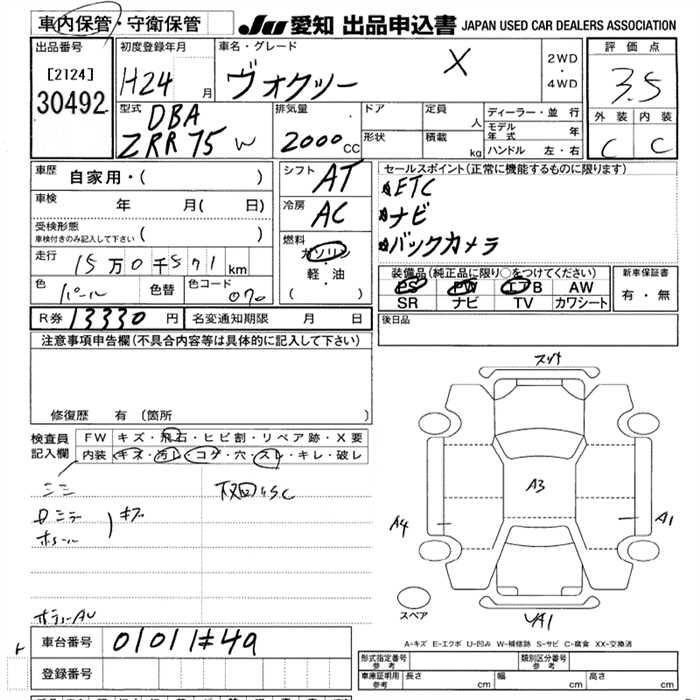 車内保管・守衛保管
JU 愛知 出品申込書 JAPAN USED CAR DEALERS ASSOCIATION
出品番号 初度登録年月 車名・グレード 2WD・4WD 評価点
[2124]
30492
H24 月 ヴォクシー X 3.5
型式 排気量 ドア 定員 人 ディーラー・並行 外装 内装
DBA
ZRR75W 2000cc 形状 積載 kg モデル年式 年
ハンドル 左・右 C C
車歴 自家用・( ) シフト AT セールスポイント(正常に機能するものに限ります)
ETC
車検 年 月( 日) 冷房 AC
ナビ
受検形態 車検付きのみ記入して下さい ( )
燃料 ガソリン・軽・油 ( )
バックカメラ
走行 15万0千571km
装備品(純正品に限り○をつけてください) 新車保証書
色 パール 色替 色コード 070
PS PW エアB AW 有・無
SR ナビ TV カワシート
R券 13330円 名変通知期限 月 日 後日品
注意事項申告欄(不具合内容等は具体的に記入して下さい)
修復歴 有(箇所 )
検査員記入欄 FW キズ・飛石・ヒビ割・リペア跡・X要
内装 キズ・汚レ・コゲ・穴・スレ・キレ・破レ
A3
A4 A1
スペア YA1
A-キズ E-エクボ U-凹み W-補修跡 S-サビ C-腐食 XX-交換済
車台番号
登録番号
形式指定番号 参考 類別区分番号 参考
車庫証明用 参考 長さ cm 幅 cm 高さ cm